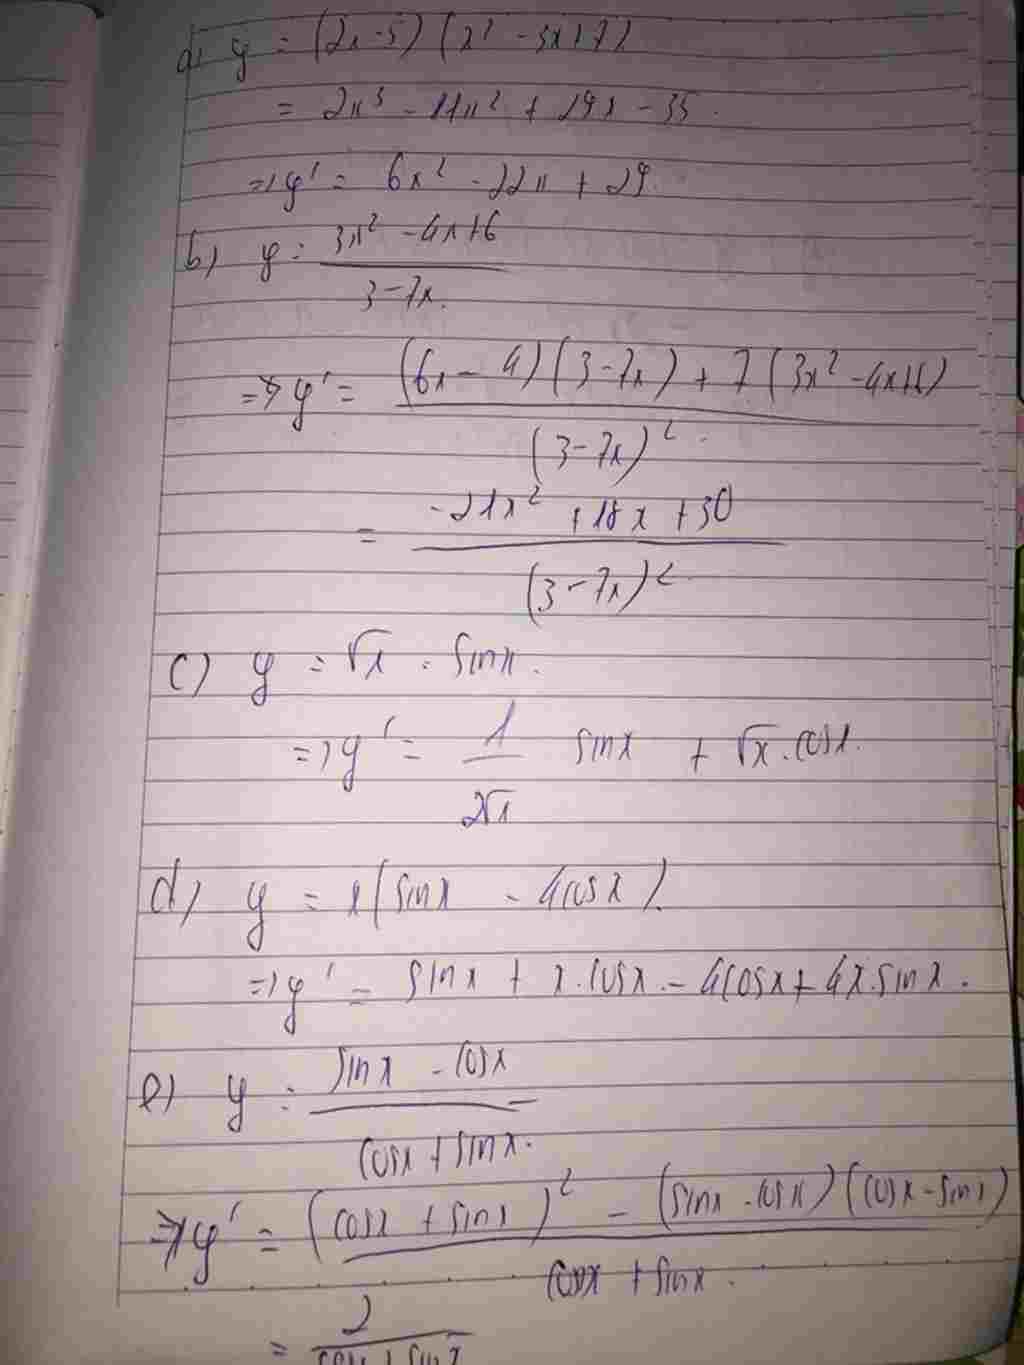 a) y = (2x-5) (x² - 3x+7)
= 2x³ - 11x² + 29x - 35.
=> y' = 6x² - 22x + 29.
b) y = (3x² - 4x+6) / (3-7x).
=> y' = ((6x - 4)(3-7x) + 7(3x² - 4x+6)) / (3-7x)².
= (-21x² + 18x + 30) / (3-7x)²
c) y = √x . sinx.
=> y' = 1 / (2√x) sinx + √x . cosx.
d) y = x(sinx - 4cosx).
=> y' = sinx + x.cosx - 4cosx + 4x.sinx.
e) y = (sinx - cosx) / (cosx + sinx).
=> y' = ((cosx + sinx)² - (sinx - cosx)(cosx - sinx)) / (cosx + sinx).
= 2 / (cosx + sinx)